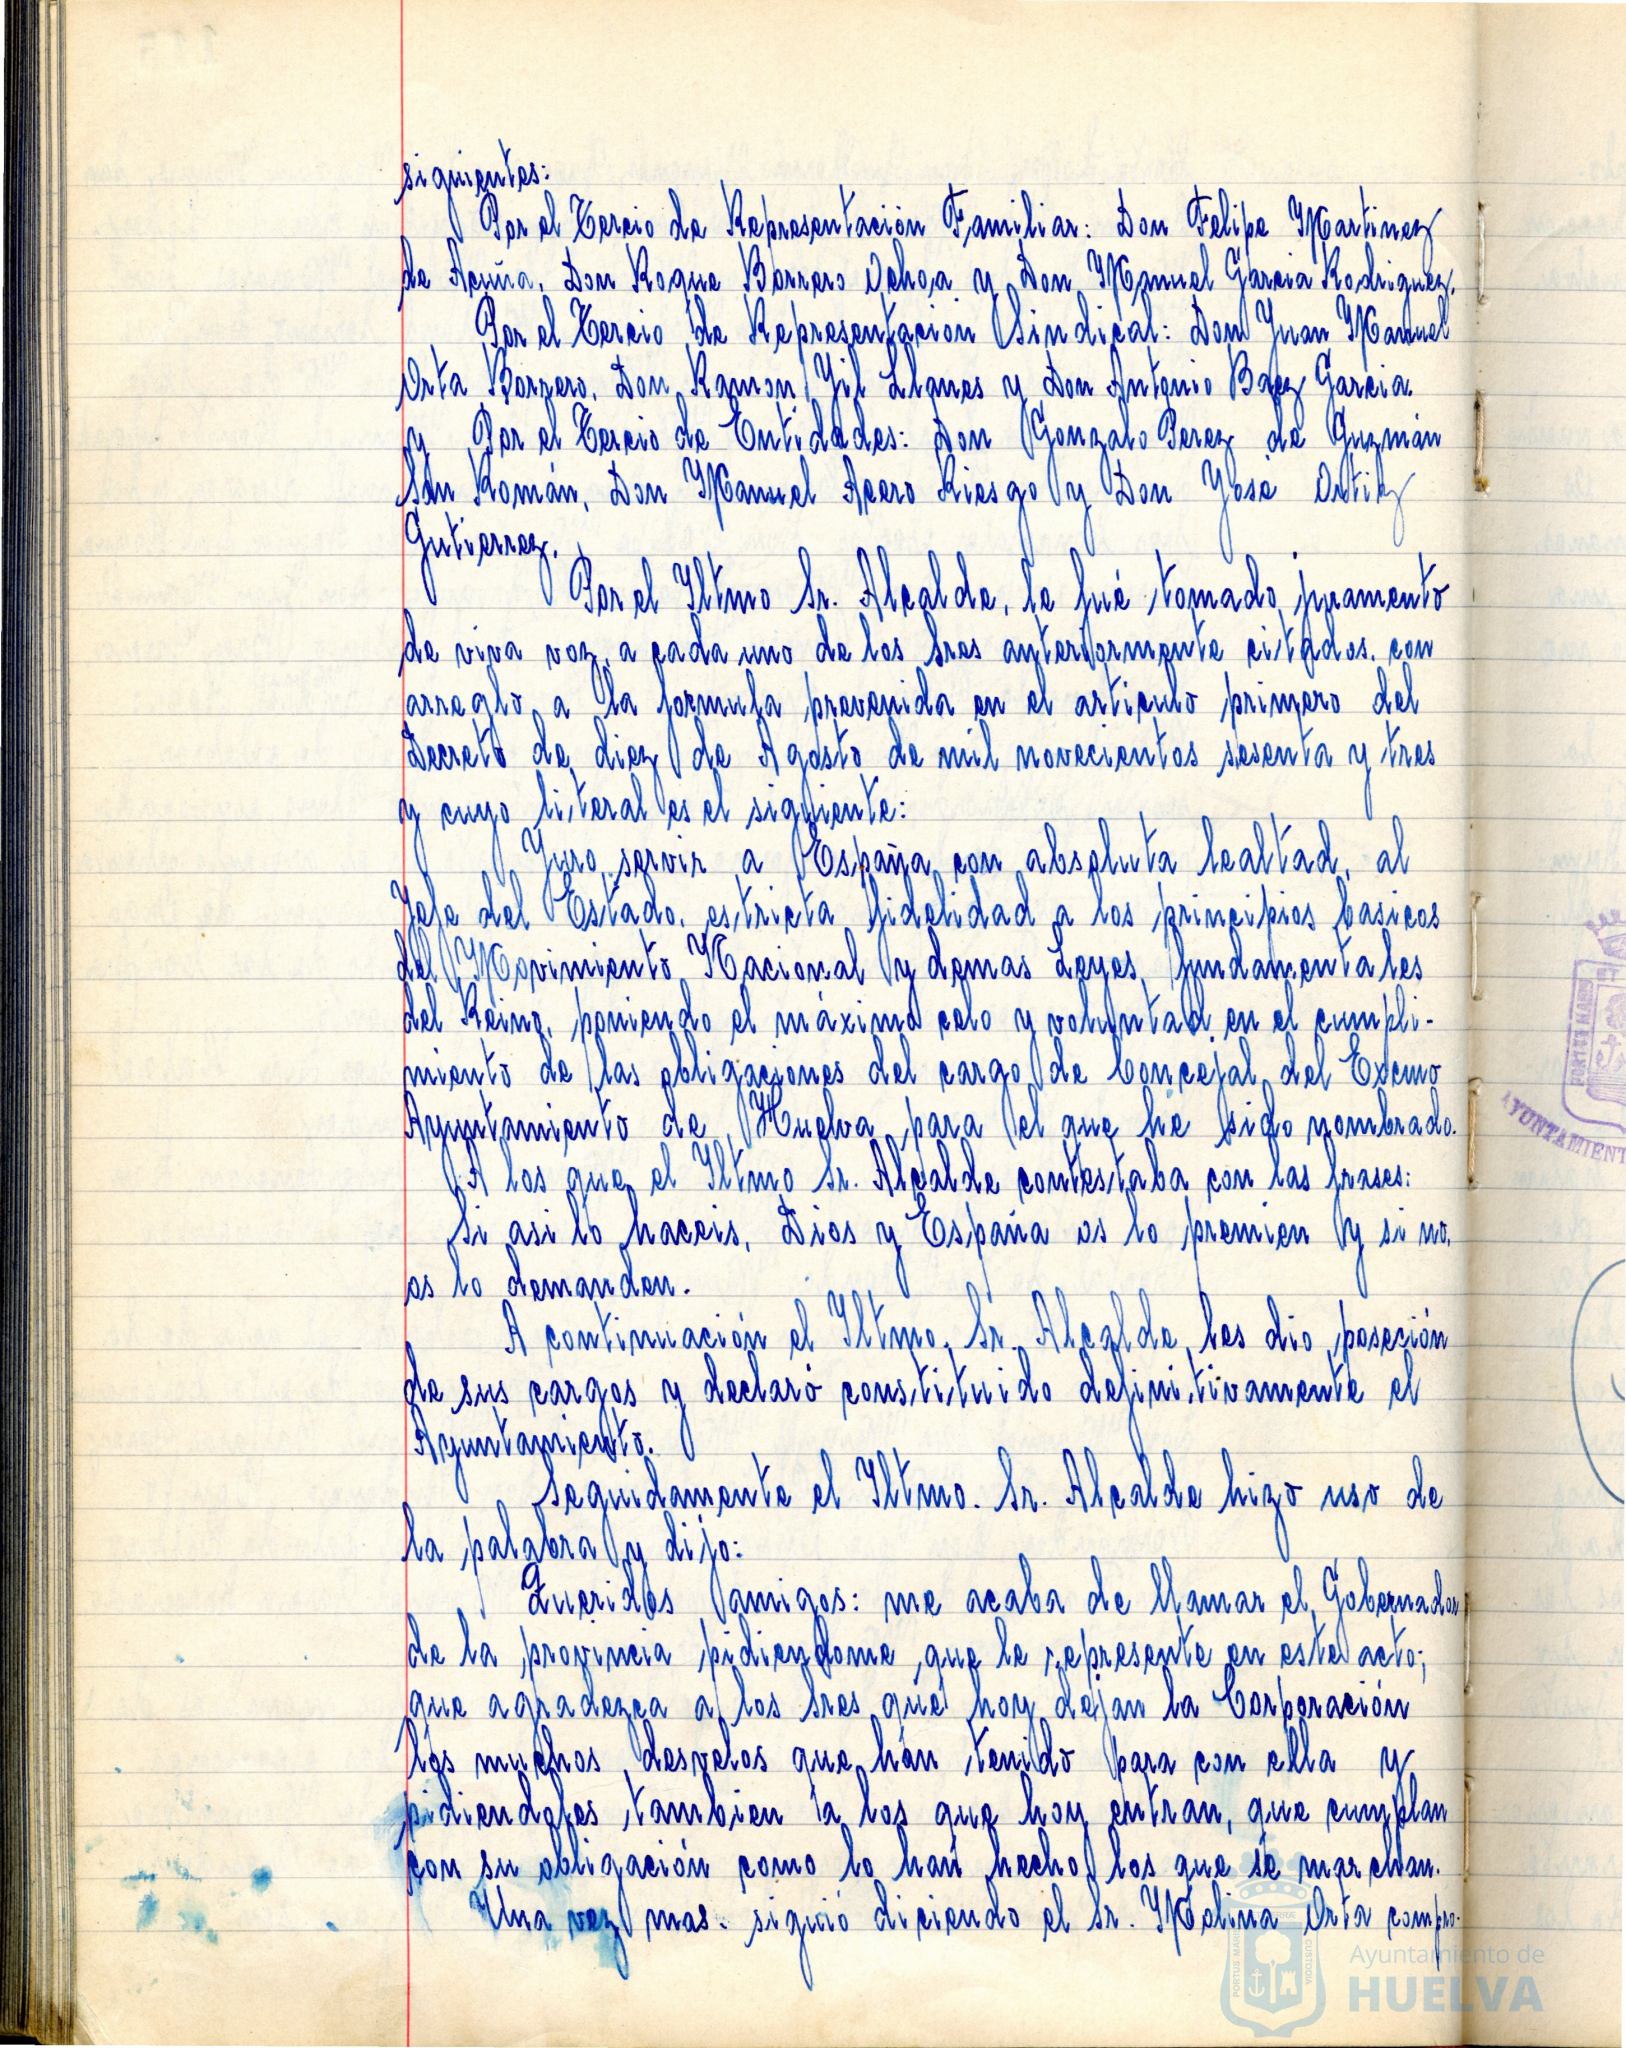 siguientes:
Por el Tercio de Representación Familiar: Don Felipe Martinez
de Acuña, Don Roque Borrero Ochoa y Don Manuel Garcia Rodriguez.
Por el Tercio de Representación Sindical: Don Juan Manuel
Orta Borrero, Don Ramon Gil Llanes y Don Antonio Baez Garcia.
y Por el Tercio de Entidades: Don Gonzalo Perez de Guzmán
San Román, Don Manuel Acero Riesgo y Don José Ortiz
Gutierrez.
Por el Iltmo Sr. Alcalde, le fué tomado juramento
de viva voz, a cada uno de los Sres anteriormente citados, con
arreglo a la formula prevenida en el articulo primero del
Decreto de diez de Agosto de mil novecientos sesenta y tres
y cuyo literal es el siguiente:
Juro servir a España con absoluta lealtad, al
Jefe del Estado, estricta fidelidad a los principios basicos
del Movimiento Nacional y demas Leyes fundamentales
del Reino, poniendo el máximo celo y voluntad en el cumpli-
miento de las obligaciones del cargo de Concejal del Excmo
Ayuntamiento de Huelva para el que he sido nombrado.
A los que el Iltmo Sr. Alcalde contestaba con las frases:
Si asi lo haceis, Dios y España os lo premien y si no,
os lo demanden.
A continuación el Iltmo. Sr. Alcalde les dio poseción
de sus cargos y declaró constituido definitivamente el
Ayuntamiento.
Seguidamente el Iltmo. Sr. Alcalde hizo uso de
la palabra y dijo:
Queridos amigos: me acaba de llamar el Gobernador
de la provincia pidiendome que le represente en este acto;
que agradezca a los Sres que hoy dejan la Corporación
los muchos desvelos que han tenido para con ella y
pidiendoles tambien a los que hoy entran, que cumplan
con su obligación como lo han hecho los que se marchan.
Una vez mas. siguió diciendo el Sr. Molina Orta compro-
PORTUS MARIS
AYUNTAMIENT
PORTUS MARIS
CUSTODIA
Ayuntamiento de
HUELVA